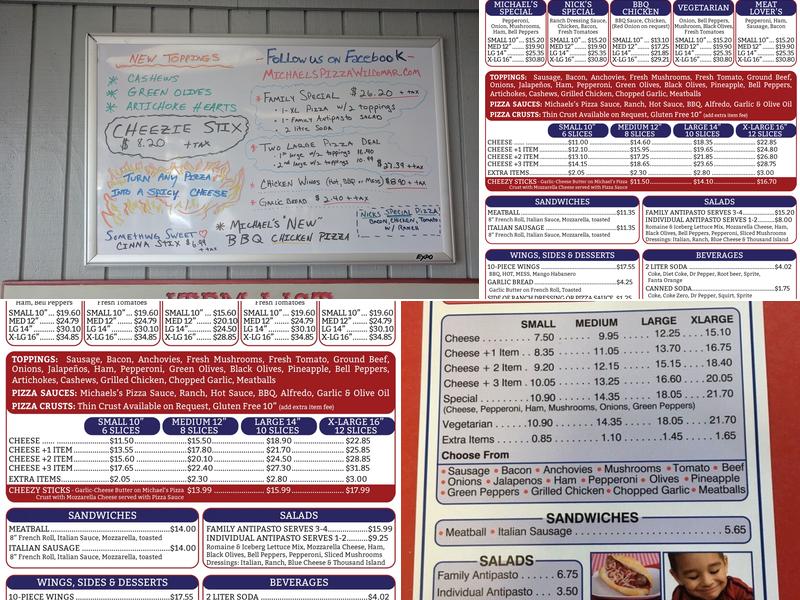 NEW TOPPINGS
* CASHEWS
* GREEN OLIVES
* ARTICHOKE HEARTS
CHEEZIE STIX
$ 8.20 + TAX
TURN ANY PIZZA
INTO A SPICY CHEESE
SOMETHING SWEET ♡
CINNA STIX $6.99
+ TAX
- Follow us on Facebook -
MICHAELSPIZZAWILDOMAR.COM
* FAMILY SPECIAL $26.20 + TAX
• 1-XL PIZZA w/2 toppings
• 1-Family Antipasto SALAD
• 2 litre Soda
* TWO LARGE PIZZA DEAL
1st large w/2 toppings
2nd large w/2 toppings 10.99
$27.39 + TAX
* CHICKEN WINGS (Hot, BBQ or Mess) $8.90 + TAX
* GARLIC BREAD $2.40 + TAX
* MICHAEL'S "NEW"
BBQ CHICKEN PIZZA
NICKS SPECIAL PIZZA
BACON, CHICKEN, Tomato
w/ RANCH
EXPO
MICHAEL'S SPECIAL
Pepperoni, Onion, Mushrooms, Ham, Bell Peppers
SMALL 10" .. $15.20
MED 12" ..... $19.90
LG 14" ....... $25.35
X-LG 16" .... $30.80
NICK'S SPECIAL
Ranch Dressing Sauce, Chicken, Bacon, Fresh Tomatoes
SMALL 10" .. $15.20
MED 12" ..... $19.90
LG 14" ....... $25.35
X-LG 16" .... $30.80
BBQ CHICKEN
BBQ Sauce, Chicken, (Red Onion on request)
SMALL 10" .. $13.10
MED 12" ..... $17.25
LG 14" ....... $21.85
X-LG 16" .... $29.21
VEGETARIAN
Onion, Bell Peppers, Mushroom, Black Olives, Fresh Tomatoes
SMALL 10" .. $15.20
MED 12" ..... $19.90
LG 14" ....... $25.35
X-LG 16" .... $30.80
MEAT LOVER'S
Pepperoni, Meatball, Ham, Sausage,
SMALL 10" .. $15.20
MED 12" ..... $19.90
LG 14" ....... $25.35
X-LG 16" .... $30.80
TOPPINGS: Sausage, Bacon, Anchovies, Fresh Mushrooms, Fresh Tomato, Ground Beef,
Onions, Jalapeños, Ham, Pepperoni, Green Olives, Black Olives, Pineapple, Bell Peppers,
Artichokes, Cashews, Grilled Chicken, Chopped Garlic, Meatballs
PIZZA SAUCES: Michaels's Pizza Sauce, Ranch, Hot Sauce, BBQ, Alfredo, Garlic & Olive Oil
PIZZA CRUSTS: Thin Crust Available on Request, Gluten Free 10" (add extra item fee)
SMALL 10" 6 SLICES MEDIUM 12" 8 SLICES LARGE 14" 10 SLICES X-LARGE 16" 12 SLICES
CHEESE $11.00 $14.60 $18.35 $22.85
CHEESE +1 ITEM $12.10 $15.95 $19.65 $24.80
CHEESE +2 ITEM $13.10 $17.25 $21.85 $26.80
CHEESE +3 ITEM $14.15 $18.65 $23.15 $28.75
EXTRA ITEMS $2.05 $2.30 $2.80 $3.00
CHEEZY STICKS - Garlic-Cheese Butter on Michael's Pizza $11.50 $14.10 $16.70
Crust with Mozzarella Cheese served with Pizza Sauce
SANDWICHES
MEATBALL $11.35
8" French Roll, Italian Sauce, Mozzarella, toasted
ITALIAN SAUSAGE $11.35
8" French Roll, Italian Sauce, Mozzarella, toasted
SALADS
FAMILY ANTIPASTO SERVES 3-4 $15.20
INDIVIDUAL ANTIPASTO SERVES 1-2 $8.00
Romaine & Iceberg Lettuce Mix, Mozzarella Cheese, Ham,
Black Olives, Bell Peppers, Pepperoni, Sliced Mushrooms
Dressings: Italian, Ranch, Blue Cheese & Thousand Island
WINGS, SIDES & DESSERTS
10-PIECE WINGS $17.55
BBQ, HOT, MESS, Mango Habanero
GARLIC BREAD $4.25
Garlic Butter on French Roll, Toasted
SIDE OF RANCH DRESSING OR PIZZA SAUCE $1.25
BEVERAGES
2 LITER SODA $4.02
Coke, Diet Coke, Dr Pepper, Root beer, Sprite,
Fanta Orange
CANNED SODA $1.75
Coke, Coke Zero, Dr Pepper, Squirt, Sprite
Ham, Bell Peppers
Fresh Tomatoes
Fresh Tomatoes
SMALL 10" .. $19.60 SMALL 10" .. $19.60 SMALL 10" .. $15.60 SMALL 10" .. $19.60 SMALL 10" .. $19.60
MED 12" ...... $24.79 MED 12" ...... $24.79 MED 12" ...... $20.10 MED 12" ...... $24.79 MED 12" ...... $24.79
LG 14" ........ $30.10 LG 14" ........ $30.10 LG 14" ........ $24.50 LG 14" ........ $30.10 LG 14" ........ $30.10
X-LG 16" .... $34.85 X-LG 16" .... $34.85 X-LG 16" .... $28.85 X-LG 16" .... $34.85 X-LG 16" .... $34.85
TOPPINGS: Sausage, Bacon, Anchovies, Fresh Mushrooms, Fresh Tomato, Ground Beef,
Onions, Jalapeños, Ham, Pepperoni, Green Olives, Black Olives, Pineapple, Bell Peppers,
Artichokes, Cashews, Grilled Chicken, Chopped Garlic, Meatballs
PIZZA SAUCES: Michaels's Pizza Sauce, Ranch, Hot Sauce, BBQ, Alfredo, Garlic & Olive Oil
PIZZA CRUSTS: Thin Crust Available on Request, Gluten Free 10" (add extra item fee)
SMALL 10" 6 SLICES MEDIUM 12" 8 SLICES LARGE 14" 10 SLICES X-LARGE 16" 12 SLICES
CHEESE $11.50 $15.50 $18.90 $22.85
CHEESE +1 ITEM $13.55 $17.80 $21.70 $25.85
CHEESE +2 ITEM $15.60 $20.10 $24.50 $28.85
CHEESE +3 ITEM $17.65 $22.40 $27.30 $31.85
EXTRA ITEMS $2.05 $2.30 $2.80 $3.00
CHEEZY STICKS - Garlic-Cheese Butter on Michael's Pizza $13.99 $15.99 $17.99
Crust with Mozzarella Cheese served with Pizza Sauce
SANDWICHES
MEATBALL $14.00
8" French Roll, Italian Sauce, Mozzarella, toasted
ITALIAN SAUSAGE $14.00
8" French Roll, Italian Sauce, Mozzarella, toasted
SALADS
FAMILY ANTIPASTO SERVES 3-4 $15.99
INDIVIDUAL ANTIPASTO SERVES 1-2 $9.25
Romaine & Iceberg Lettuce Mix, Mozzarella Cheese, Ham,
Black Olives, Bell Peppers, Pepperoni, Sliced Mushrooms
Dressings: Italian, Ranch, Blue Cheese & Thousand Island
WINGS, SIDES & DESSERTS
10-PIECE WINGS $17.55
BEVERAGES
2 LITER SODA $4.02
SMALL MEDIUM LARGE XLARGE
Cheese 7.50 9.95 12.25 15.10
Cheese +1 Item 8.35 11.05 13.70 16.75
Cheese + 2 Item 9.20 12.15 15.15 18.40
Cheese + 3 Item 10.05 13.25 16.60 20.05
Special 10.90 14.35 18.05 21.70
(Cheese, Pepperoni, Ham, Mushrooms, Onions, Green Peppers)
Vegetarian 10.90 14.35 18.05 21.70
Extra Items 0.85 1.10 1.45 1.65
Choose From
• Sausage • Bacon • Anchovies • Mushrooms • Tomato • Beef
• Onions • Jalapenos • Ham • Pepperoni • Olives • Pineapple
• Green Peppers • Grilled Chicken • Chopped Garlic • Meatballs
SANDWICHES
• Meatball • Italian Sausage 5.65
SALADS
Family Antipasto 6.75
Individual Antipasto 3.50